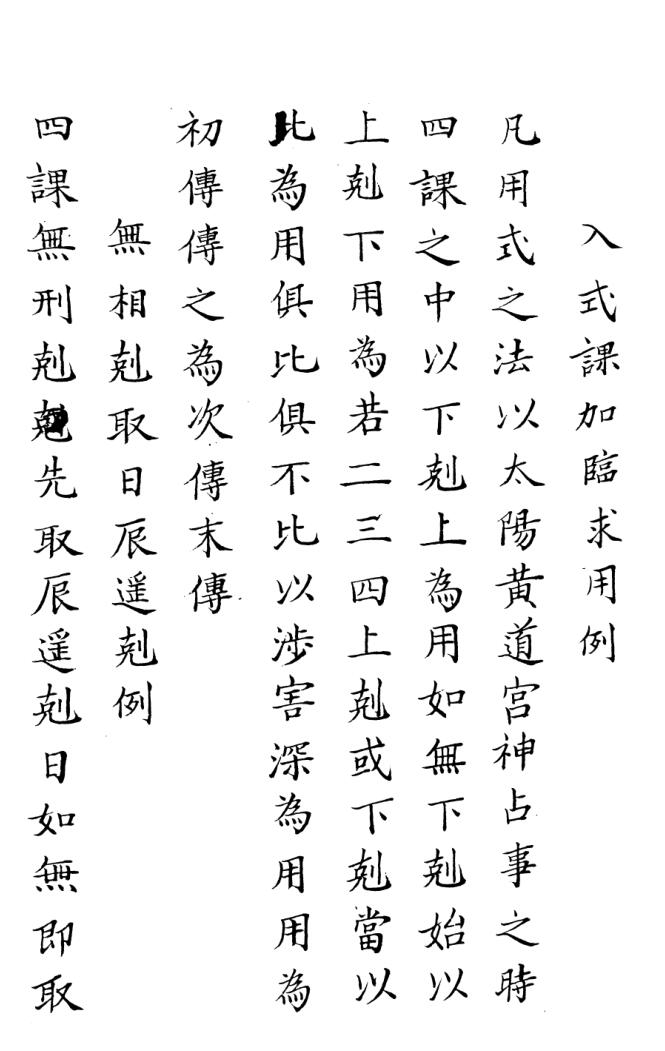 入式課加臨求用例
凡用式之法以太陽黃道宫神占事之時
四課之中以下剋上為用如無下剋始以
上剋下用為若二三四上剋或下剋當以
比為用俱比俱不比以涉害深為用用為
初傳傳之為次傳末傳
無相剋取日辰遥剋例
四課無刑剋剋先取辰遥剋日如無即取